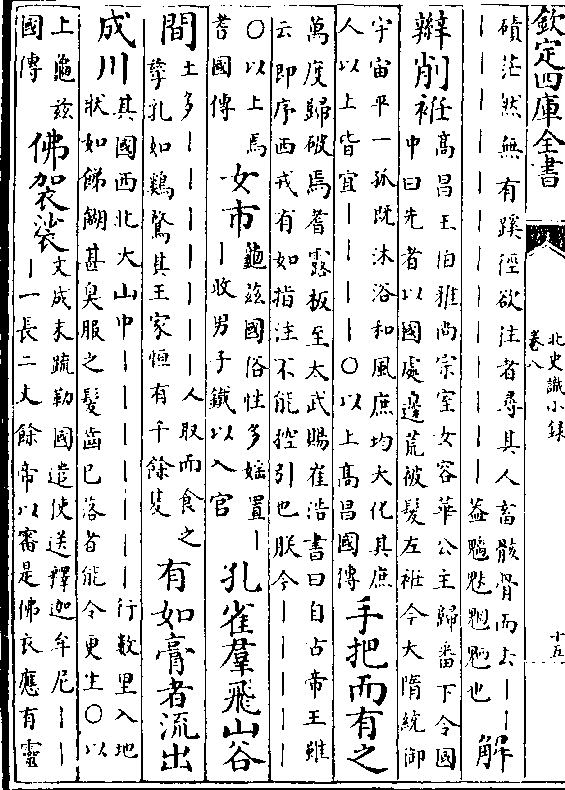 欽定四庫全書
北史識小録
卷八
十五
磧茫然無有蹊徑欲往者尋其人畜骸骨而去｜｜
｜｜｜｜｜｜｜｜｜｜｜｜葢魑魅魍魎也
解
辮削衽
髙昌王伯雅尚宗室女容華公主歸蕃下令國
中曰先者以國處邊荒被髮左衽今大隋統御
宇宙平一孤既沐浴和風庶均大化其庶
人以上皆宜｜｜｜｜｜○以上髙昌國傳
手把而有之
萬度歸破焉耆露板至太武賜崔浩書曰自古帝王雖
云即序西戎有如指注不能控引也朕今｜｜｜｜｜
○以上焉
耆國傳
女市
龜兹國俗性多婬置｜
｜收男子錢以入官
孔雀羣飛山谷
間
土多｜｜｜｜｜｜｜人取而食之
孳乳如鷄鶩其王家恒有千餘隻
有如膏者流出
成川
其國西北大山中｜｜｜｜｜｜｜｜行數里入地
狀如餳餬甚臭服之髮齒已落者能令更生○以
上龜兹
國傳
佛袈裟
文成末疏勒國遣使送釋迦牟尼｜｜
｜一長二丈餘帝以審是佛衣應有靈